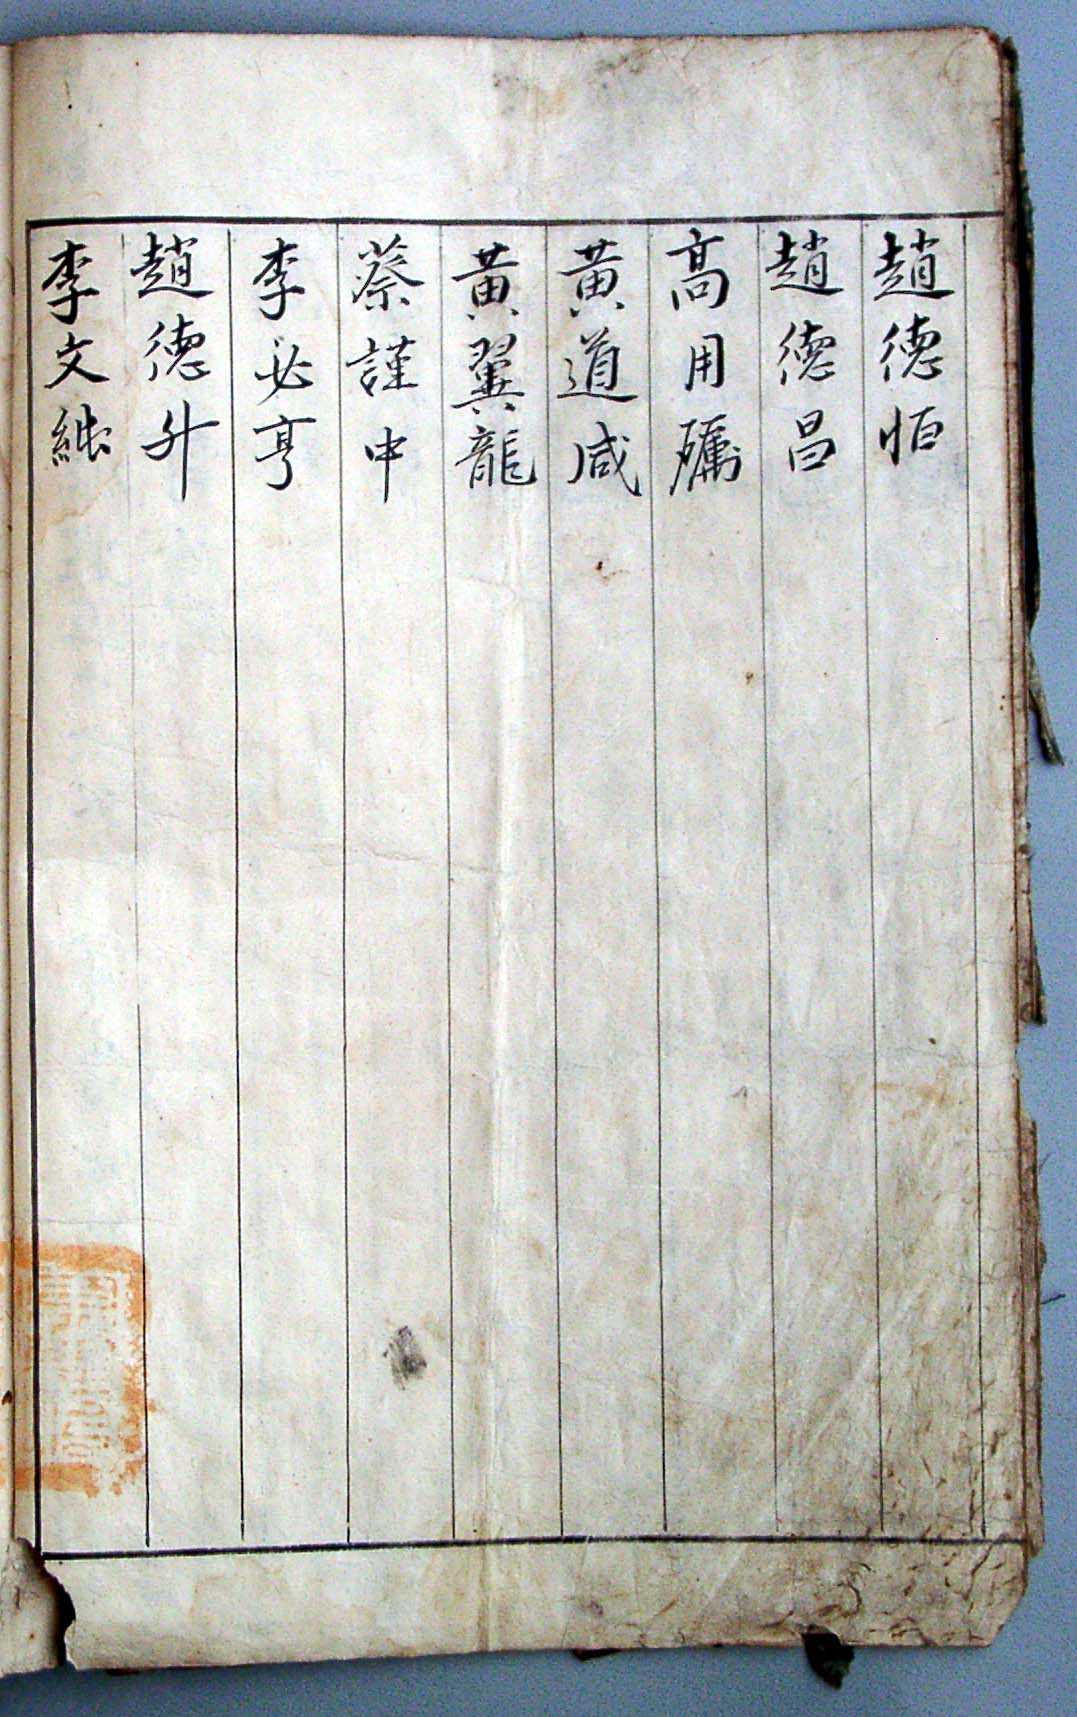 趙德恒
趙德昌
高用礪
黃道咸
黃翼龍
蔡謹中
李必亨
趙德升
李文